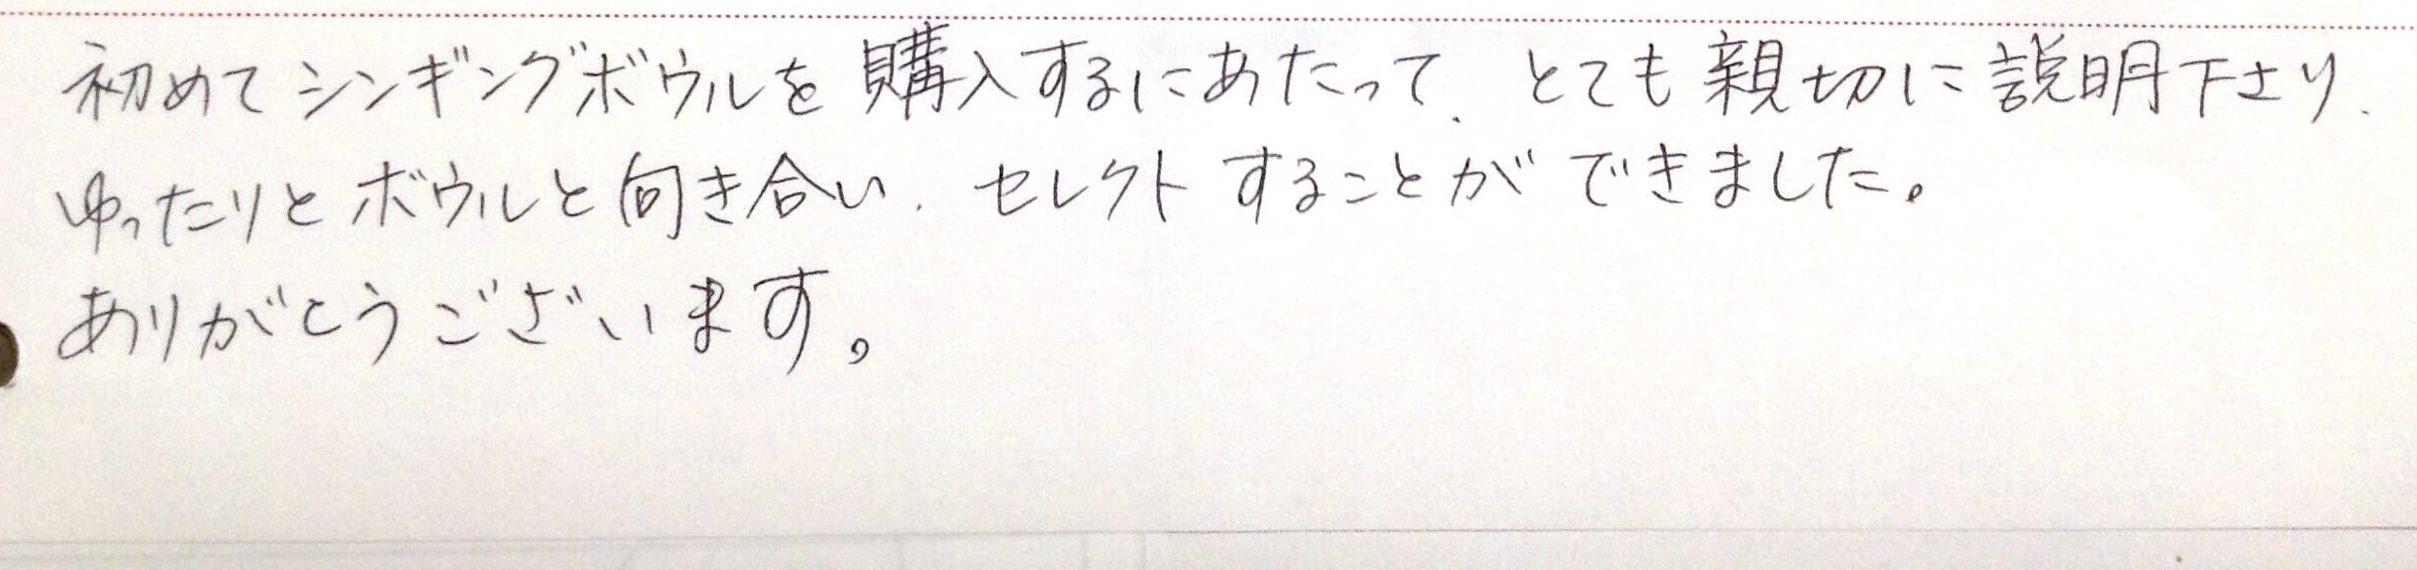 初めてシンギングボウルを購入するにあたって、とても親切に説明下さり、
ゆったりとボウルと向き合い、セレクトすることができました。
ありがとうございます。